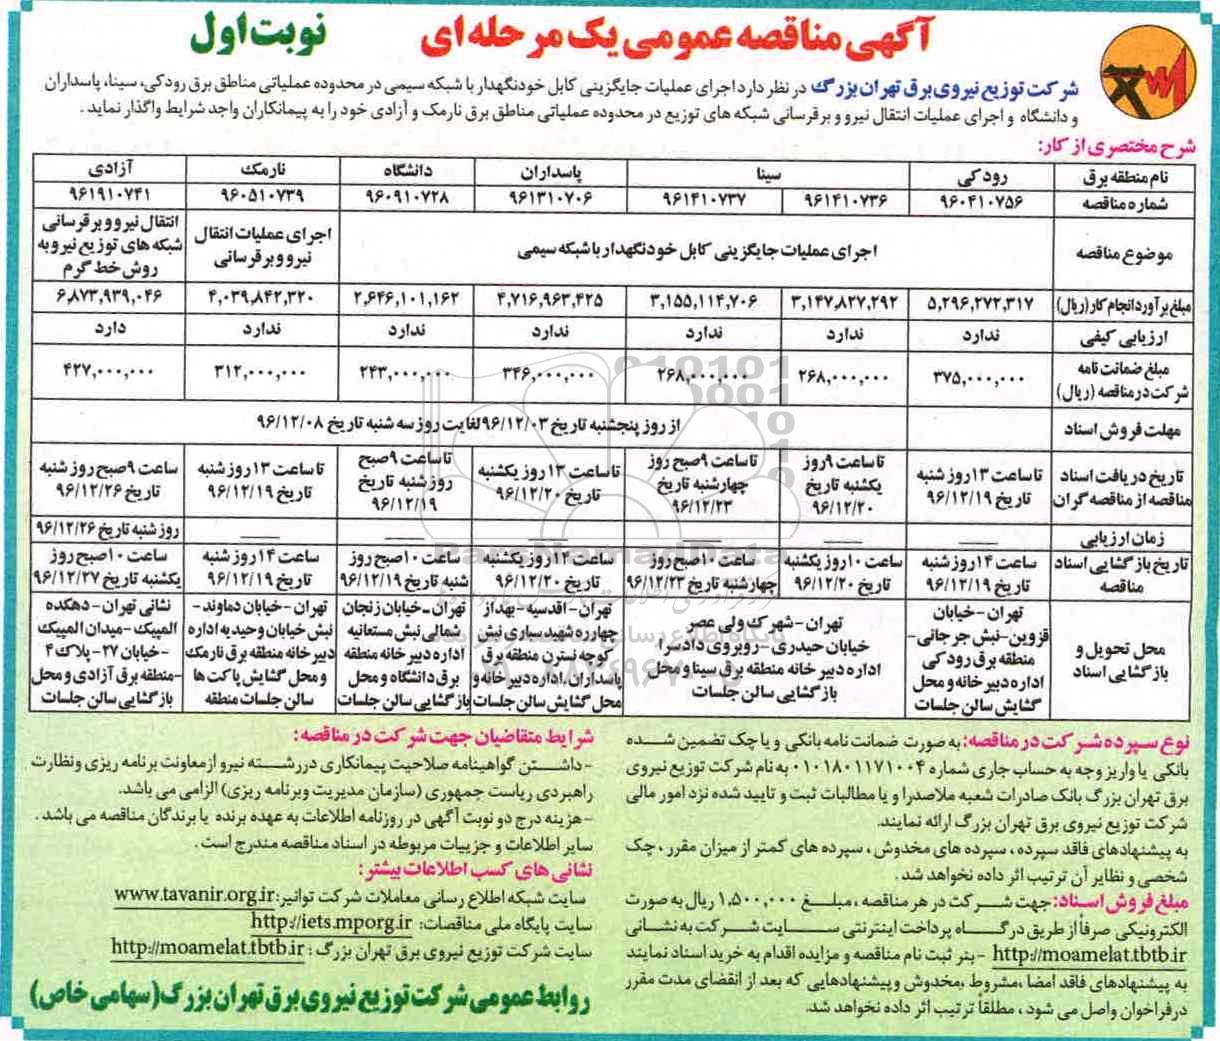 آگهی مناقصه عمومی یک مرحله ای
نوبت اول
شرکت توزیع نیروی برق تهران بزرگ در نظر دارد اجرای عملیات جایگزینی کابل خودنگهدار با شبکه سیمی در محدوده عملیاتی مناطق برق رودکی، سینا، پاسداران
و دانشگاه و اجرای عملیات انتقال نیرو و برقرسانی شبکه های توزیع در محدوده عملیاتی مناطق برق نارمک و آزادی خود را به پیمانکاران واجد شرایط واگذار نماید .
شرح مختصری از کار:
نام منطقه برق رودکی سینا پاسداران دانشگاه نارمک آزادی
شماره مناقصه ۹۶۰۴۱۰۷۵۶ ۹۶۱۴۱۰۷۳۶ ۹۶۱۴۱۰۷۳۷ ۹۶۱۳۱۰۷۰۶ ۹۶۰۹۱۰۷۲۸ ۹۶۰۵۱۰۷۳۹ ۹۶۱۹۱۰۷۴۱
موضوع مناقصه اجرای عملیات جایگزینی کابل خودنگهدار با شبکه سیمی
اجرای عملیات انتقال
نیرو و برقرسانی
انتقال نیرو و برقرسانی
شبکه های توزیع نیرو به
روش خط گرم
مبلغ برآورد انجام کار (ریال) ۵,۲۹۶,۲۷۲,۳۱۷ ۳,۱۴۷,۸۲۷,۲۹۲ ۳,۱۵۵,۱۱۴,۷۰۶ ۴,۷۱۶,۹۶۳,۴۲۵ ۲,۶۴۶,۱۰۱,۱۶۲ ۴,۰۳۹,۸۴۲,۳۲۰ ۶,۸۷۳,۹۳۹,۰۴۶
ارزیابی کیفی ندارد ندارد ندارد ندارد ندارد ندارد دارد
مبلغ ضمانت نامه
شرکت در مناقصه (ریال)
۳۷۵,۰۰۰,۰۰۰ ۲۶۸,۰۰۰,۰۰۰ ۲۶۸,۰۰۰,۰۰۰ ۳۴۶,۰۰۰,۰۰۰ ۲۴۳,۰۰۰,۰۰۰ ۳۱۲,۰۰۰,۰۰۰ ۴۲۷,۰۰۰,۰۰۰
مهلت فروش اسناد از روز پنجشنبه تاریخ ۹۶/۱۲/۰۳ لغایت روز سه شنبه تاریخ ۹۶/۱۲/۰۸
تاریخ دریافت اسناد
مناقصه از مناقصه گران
تا ساعت ۱۳ روز شنبه
تاریخ ۹۶/۱۲/۱۹
تا ساعت ۹ روز
یکشنبه تاریخ
۹۶/۱۲/۲۰
تا ساعت ۹ صبح روز
چهارشنبه تاریخ
۹۶/۱۲/۲۳
تا ساعت ۱۳ روز یکشنبه
تاریخ ۹۶/۱۲/۲۰
تا ساعت ۹ صبح
روز شنبه تاریخ
۹۶/۱۲/۱۹
تا ساعت ۱۳ روز شنبه
تاریخ ۹۶/۱۲/۱۹
ساعت ۹ صبح روز شنبه
تاریخ ۹۶/۱۲/۲۶
زمان ارزیابی روز شنبه تاریخ ۹۶/۱۲/۲۶
تاریخ بازگشایی اسناد
مناقصه
ساعت ۱۴ روز شنبه
تاریخ ۹۶/۱۲/۱۹
ساعت ۱۰ روز یکشنبه
تاریخ ۹۶/۱۲/۲۰
ساعت ۱۰ صبح روز
چهارشنبه تاریخ ۹۶/۱۲/۲۳
ساعت ۱۴ روز یکشنبه
تاریخ ۹۶/۱۲/۲۰
ساعت ۱۰ صبح روز
شنبه تاریخ ۹۶/۱۲/۱۹
ساعت ۱۴ روز شنبه
تاریخ ۹۶/۱۲/۱۹
ساعت ۱۰ صبح روز
یکشنبه تاریخ ۹۶/۱۲/۲۷
محل تحویل و
بازگشایی اسناد
تهران - خیابان
قزوین - نبش جرجانی -
منطقه برق رودکی
اداره دبیرخانه و محل
گشایش سالن جلسات
تهران - شهرک ولی عصر
خیابان حیدری - روبروی دادسرا
اداره دبیر خانه منطقه برق سینا و محل
بازگشایی سالن جلسات
تهران - اقدسیه - بهداز
چهارره شهید سباری نبش
کوچه نسترن منطقه برق
پاسداران, اداره دبیر خانه و
محل گشایش سالن جلسات
تهران - خیابان زنجان
شمالی نبش مستعانیه
اداره دبیر خانه منطقه
برق دانشگاه و محل
بازگشایی سالن جلسات
تهران - خیابان دماوند -
نبش خیابان وحیدیه اداره
دبیر خانه منطقه برق نارمک
و محل گشایش پاکت ها
سالن جلسات منطقه
نشانی تهران - دهکده
المپیک - میدان المپیک
- خیابان ۲۷ - پلاک ۴
- منطقه برق آزادی و محل
بازگشایی سالن جلسات
نوع سپرده شرکت در مناقصه: به صورت ضمانت نامه بانکی و یا چک تضمین شده
بانکی یا واریز وجه به حساب جاری شماره ۰۱۰۱۸۰۱۱۷۱۰۰۴ به نام شرکت توزیع نیروی
برق تهران بزرگ بانک صادرات شعبه ملاصدرا و یا مطالبات ثبت و تایید شده نزد امور مالی
شرکت توزیع نیروی برق تهران بزرگ ارائه نمایند.
به پیشنهادهای فاقد سپرده ، سپرده های مخدوش ، سپرده های کمتر از میزان مقرر ، چک
شخصی و نظایر آن ترتیب اثر داده نخواهد شد .
مبلغ فروش اسناد: جهت شرکت در هر مناقصه ، مبلغ ۱,۵۰۰,۰۰۰ ریال به صورت
الکترونیکی صرفاً از طریق درگاه پرداخت اینترنتی سایت شرکت به نشانی
http://moamelat.tbtb.ir - بنر ثبت نام مناقصه و مزایده اقدام به خرید اسناد نمایند
به پیشنهادهای فاقد امضا ،مشروط ،مخدوش و پیشنهادهایی که بعد از انقضای مدت مقرر
در فراخوان واصل می شود ، مطلقا ترتیب اثر داده نخواهد شد.
شرایط متقاضیان جهت شرکت در مناقصه :
- داشتن گواهینامه صلاحیت پیمانکاری در رشته نیرو از معاونت برنامه ریزی و نظارت
راهبردی ریاست جمهوری (سازمان مدیریت و برنامه ریزی) الزامی می باشد.
- هزینه درج دو نوبت آگهی در روزنامه اطلاعات به عهده برنده یا برندگان مناقصه می باشد .
سایر اطلاعات و جزییات مربوطه در اسناد مناقصه مندرج است .
نشانی های کسب اطلاعات بیشتر:
سایت شبکه اطلاع رسانی معاملات شرکت توانیر: www.tavanir.org.ir
سایت پایگاه ملی مناقصات: http://iets.mporg.ir
سایت شرکت توزیع نیروی برق تهران بزرگ : http://moamelat.tbtb.ir
روابط عمومی شرکت توزیع نیروی برق تهران بزرگ (سهامی خاص)